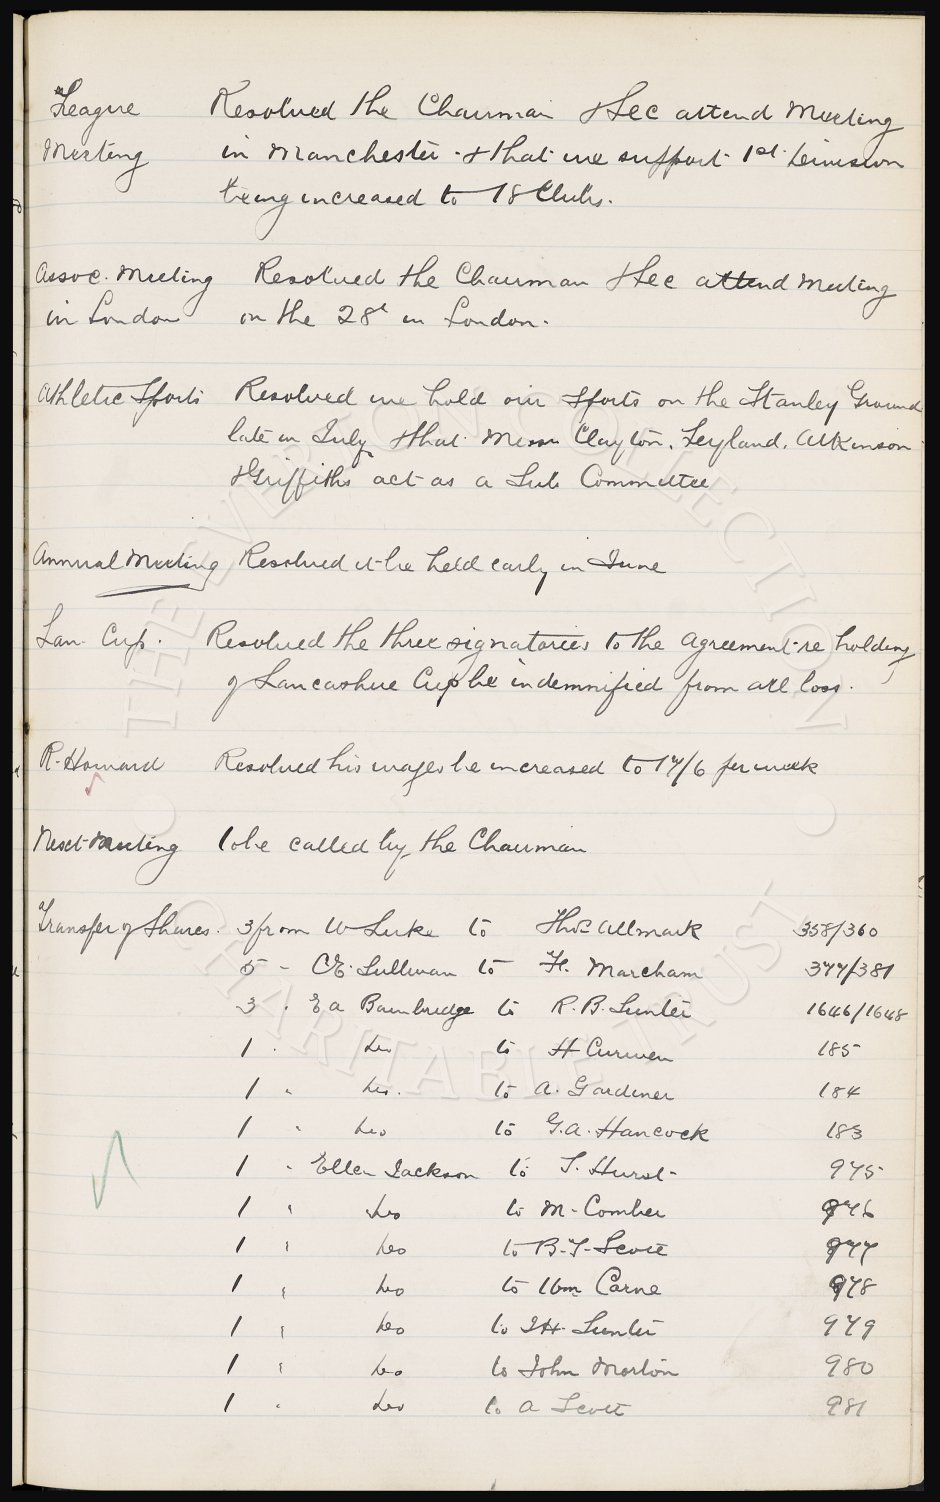 League Resolved the Chairman & Sec attend Meeting
Meeting in Manchester & that we support 1st Division
being increased to 18 Clubs.
Assoc. Meeting Resolved the Chairman & Sec attend Meeting
in London on the 28th in London.
Athletic Sports Resolved we hold our Sports on the Stanley Ground
late in July & that Messrs Clayton, Leyland, Atkinson
& Griffiths act as a Sub Committee
Annual Meeting Resolved it be held early in June
Lan. Cup. Resolved the three signatories to the agreement re holding
of Lancashire Cup be indemnified from all loss.
R. Howard Resolved his wages be increased to 17/6 per week
Next Meeting To be called by the Chairman
Transfer of Shares. 3 from W Luke to Thos Allmark 358/360
5 - C E. Sullivan to H. Marcham 377/381
3 " E A Bainbridge to R. B. Sunter 1646/1648
1 " do to H Curwen 185
1 " do. to A. Gardiner 184
1 " do to G. A. Hancock 183
1 " Ellen Jackson to T. Hurst 975
1 " do to M. Comber 976
1 " do to B. T. Scott 977
1 " do to Wm Carne 978
1 " do to J H Sunter 979
1 " do to John Morton 980
1 " do to A Scott 981
THE EVERTON COLLECTION
CHARITABLE TRUST